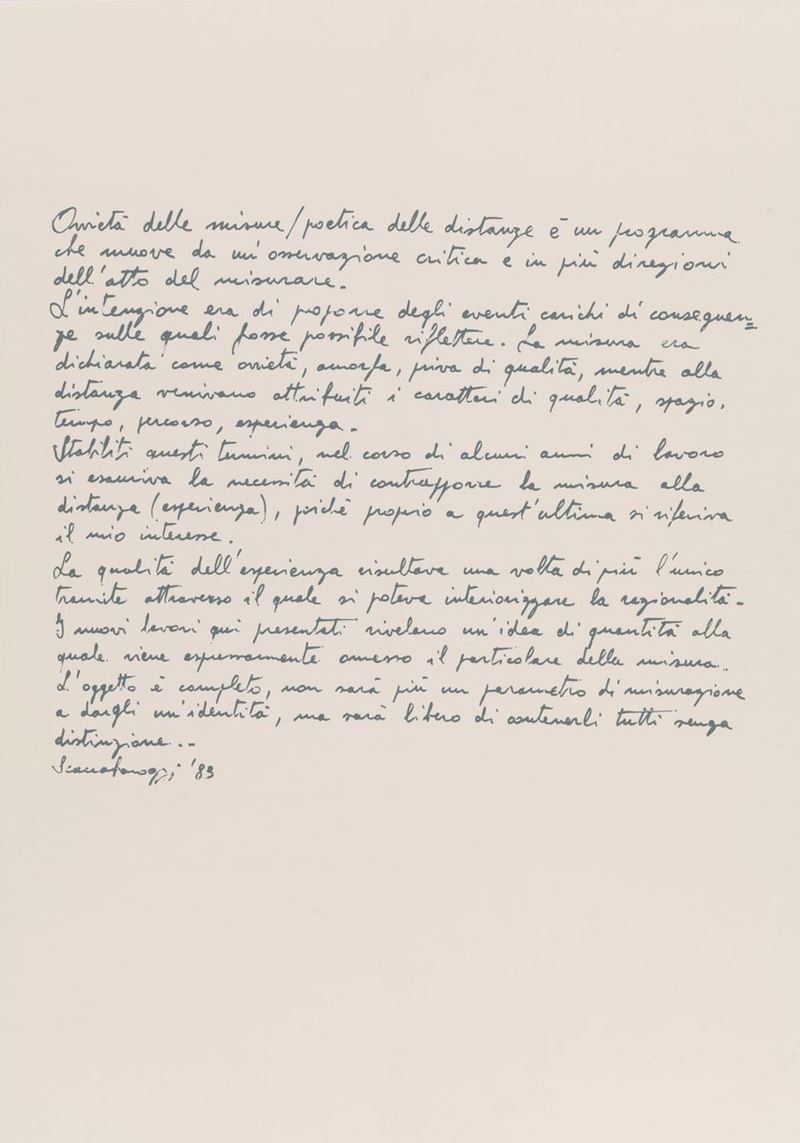 Ovvietà delle misure/poetica delle distanze è un programma
che muove da un'osservazione critica e in più direzioni
dell'atto del misurare.
L'intenzione era di proporre degli eventi carichi di conseguen=
ze sulle quali fosse possibile riflettere. La misura era
dichiarata come ovvietà, amorfa, priva di qualità, mentre alla
distanza venivano attribuiti i caratteri di qualità, spazio,
tempo, percorso, esperienza.
Stabiliti questi termini, nel corso di alcuni anni di lavoro
si esauriva la necessità di contrapporre la misura alla
distanza (esperienza), poiché proprio a quest'ultima si riferiva
il mio interesse.
La qualità dell'esperienza risultava una volta di più l'unico
tramite attraverso il quale si poteva interiorizzare la razionalità.
I nuovi lavori qui presentati rivelano un'idea di quantità alla
quale viene espressamente omesso il particolare della misura.
L'oggetto è completo, non sarà più un parametro di misurazione
a dargli un'identità, ma sarà libero di contenerli tutti senza
distinzione..
'83